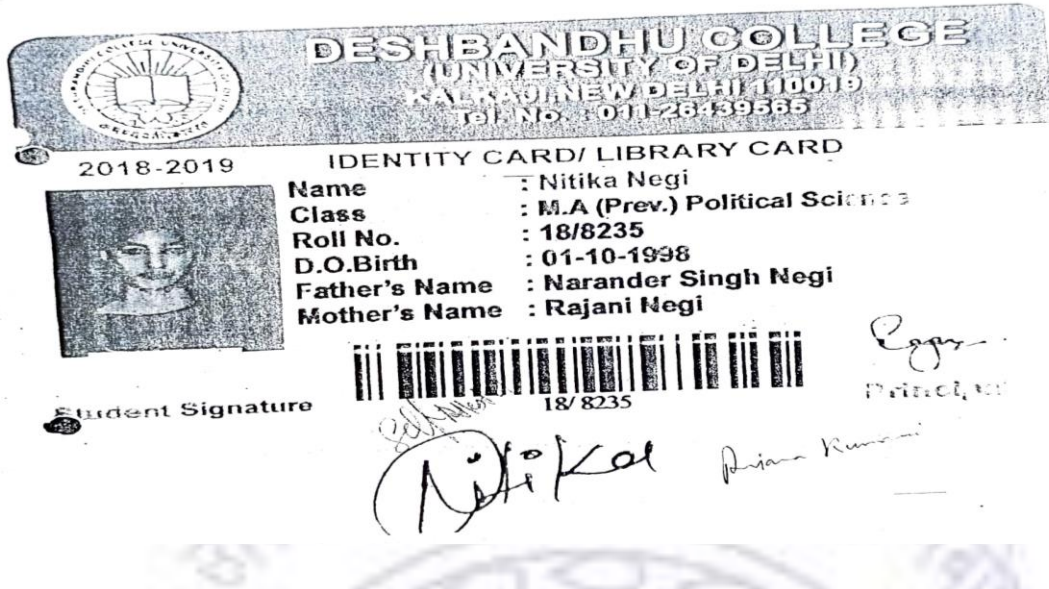 DESHBANDHU COLLEGE
(UNIVERSITY OF DELHI)
KALKAJI NEW DELHI 110019
Tel. No. : 011-26439565
2018-2019
IDENTITY CARD/ LIBRARY CARD
Name : Nitika Negi
Class : M.A (Prev.) Political Science
Roll No. : 18/8235
D.O.Birth : 01-10-1998
Father's Name : Narander Singh Negi
Mother's Name : Rajani Negi
18/8235
Student Signature
Principal
Nitika